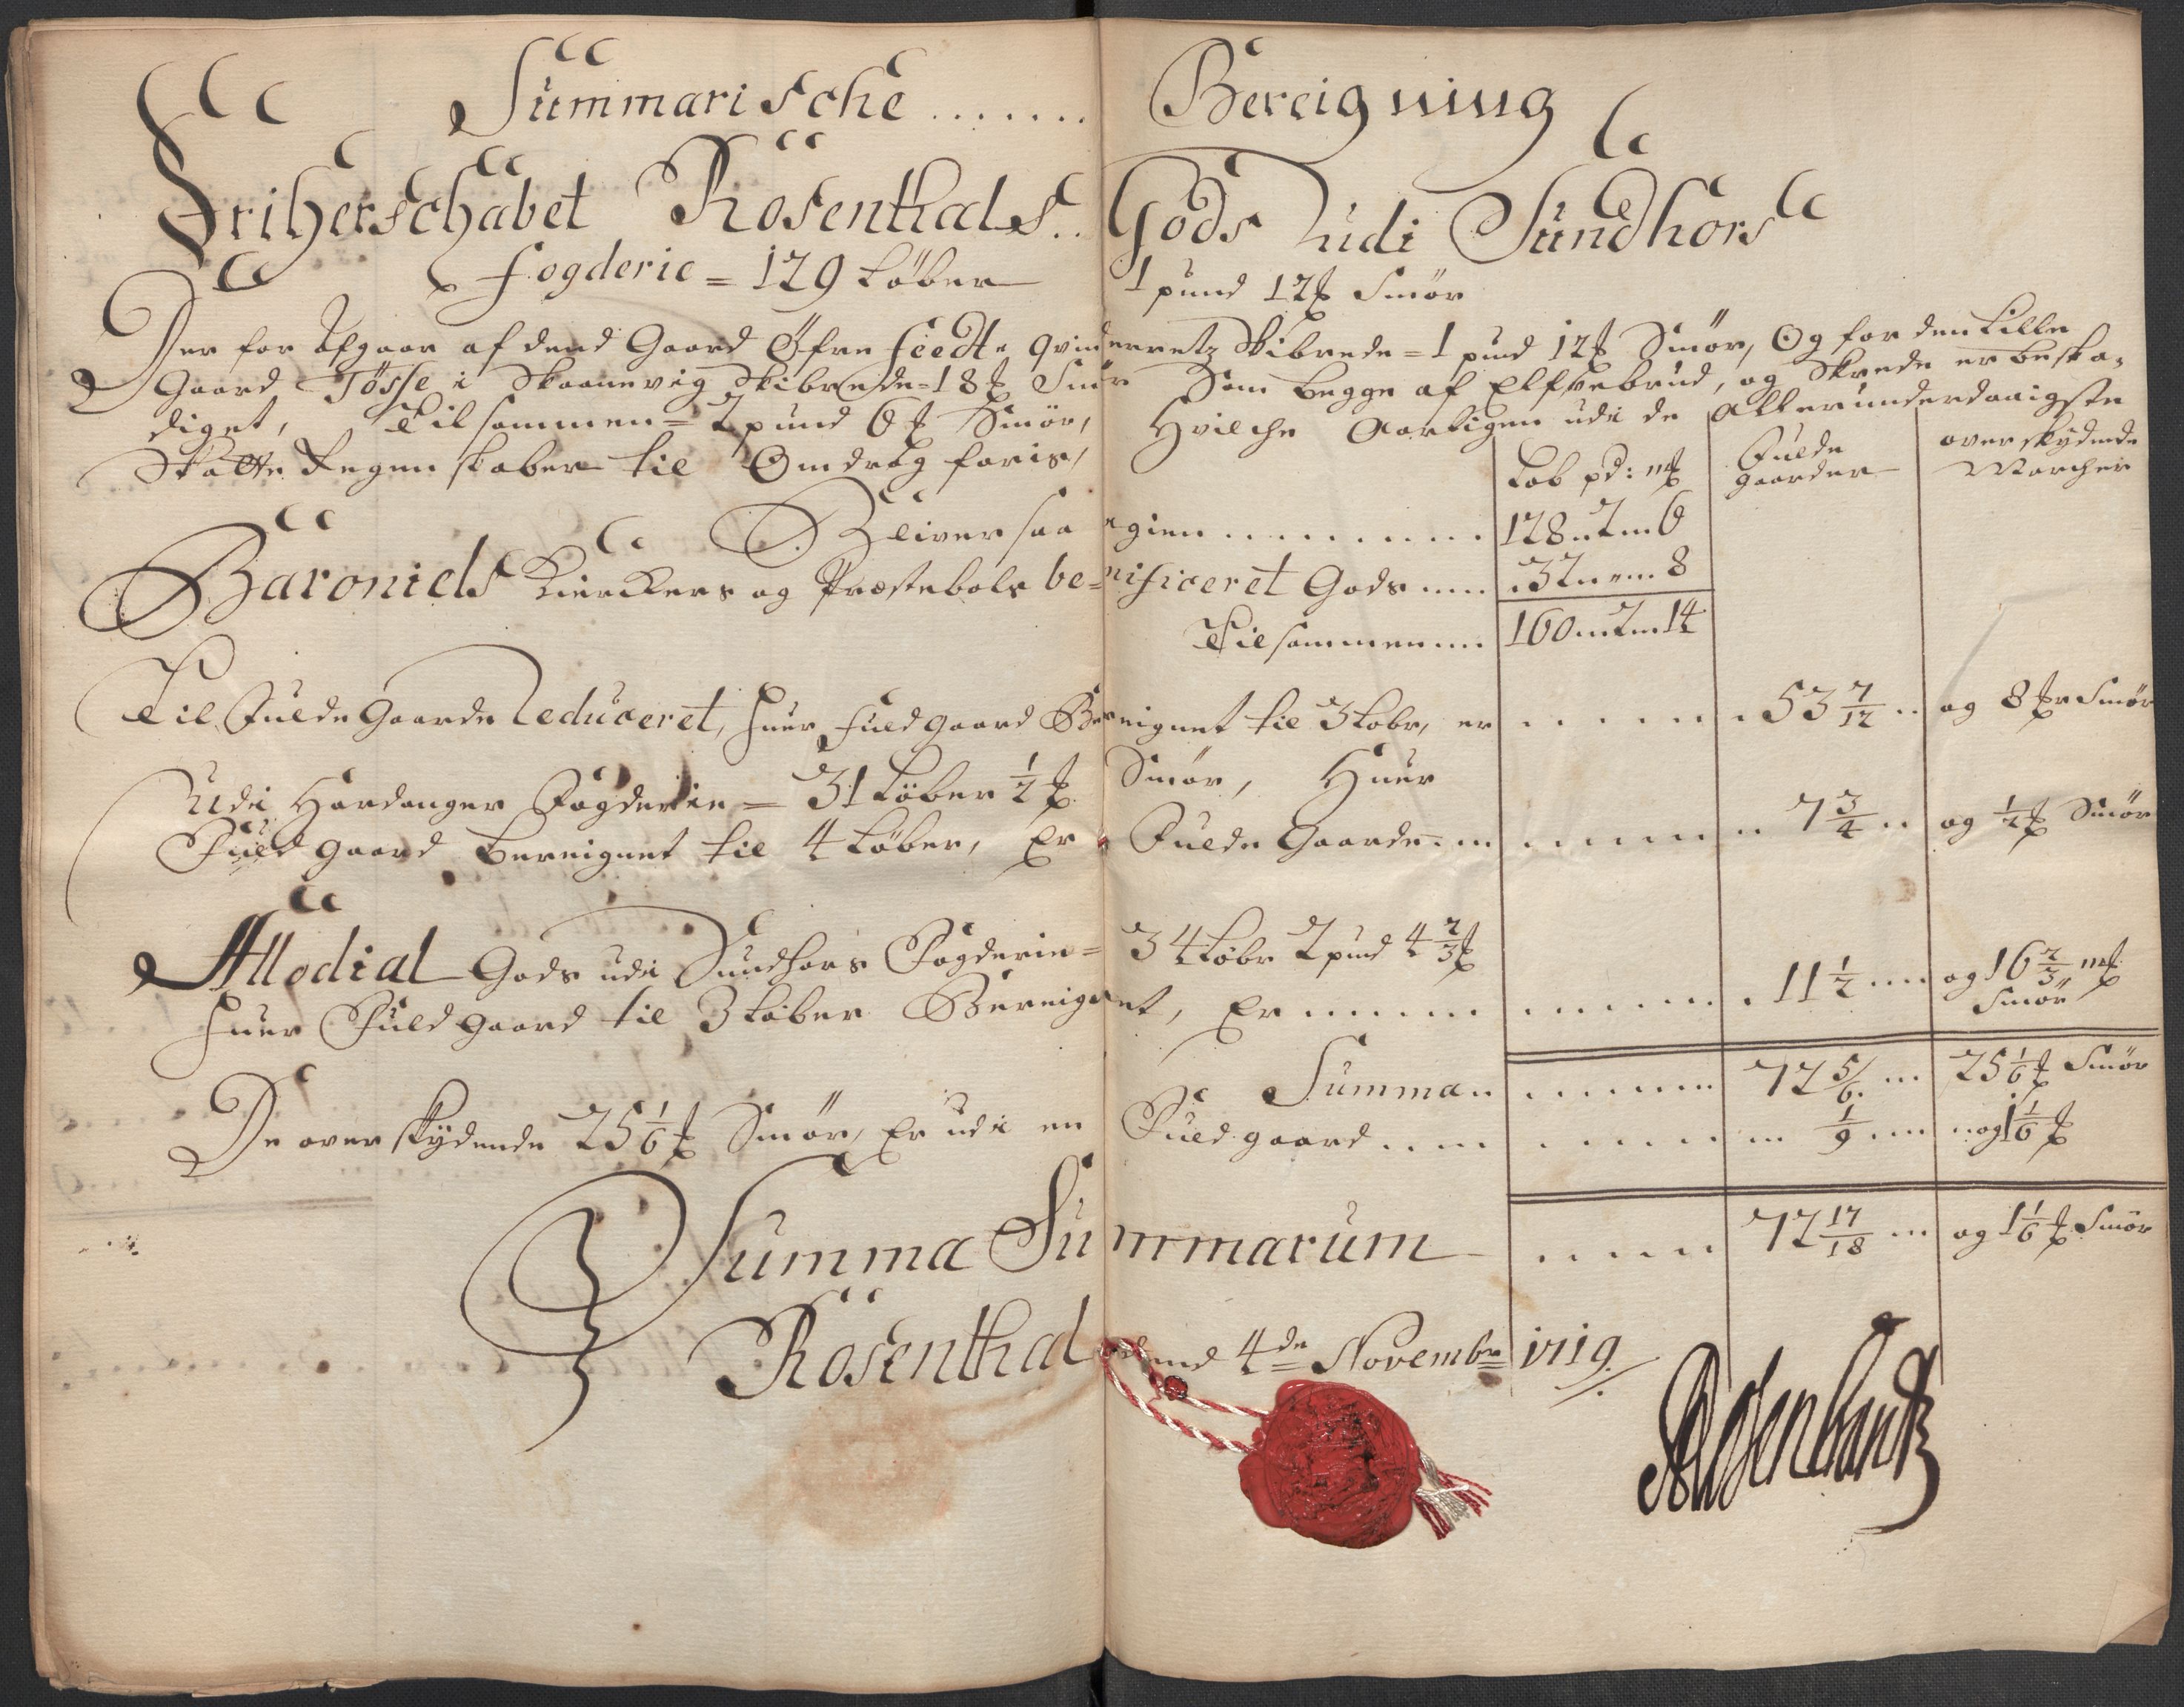 Summarische ....... Bereigning
Friherschabet Rosenthals.. Gods Udi Sundhors
fogderie = 129 Løber 1 pund 12 ℔ Smør
Der for Afgaar af dend Gaard Øfre feedt i qvinderretz Skibrede = 1 pund 12 ℔ Smør, Og for den Lille
Gaard Tösse i Skaanevig Skibrede = 18 ℔ Smör Som begge af Elfvebrud, og Skrede er beska-
diget, Tilsammen = 2 pund 6 ℔ Smör, Hvilche Aarligen udi de allerunderdaaigste
Skatte Regenskaber til Omdrag føris,
Løb pd: m℔
Fulde gaarder
overskydende Marcher
Bliver saa egien .......... 128 .. 2 .. 6
Baroniels Kierckers og Præstebols beneficeret Gods .... 32 .. „ .. 8
Tilsammen .... 160 .. 2 .. 14
Til Fulde Gaarde Reduceret, huer fuld gaard Bereignet til 3 Løbr, er ...... 53 7/12 .. og 8 ℔r Smör
Udi Hardanger Fogderie = 31 Löber 1/2 ℔ Smör, Huer
Fuld gaard bereignet til 4 Löber, Er Fulde Gaarde .. 7 3/4 .. og 1/2 ℔ Smör
Allodial Gods udi Sundhors Fogderie = 34 Löbr 2 pund 4 2/3 ℔
huer Fuld gaard til 3 Løber Bereignet, Er ........ 11 1/2 .... og 16 2/3 m℔ Smör
Summa .. ...... 72 5/6 ... 25 1/6 ℔ Smör
De overskydende 25 1/6 ℔ Smör, Er udi en Fuld gaard .... ...... 1/9 .... og 1 1/6 ℔
Summa Summarum ..... 72 17/18 ... og 1 1/6 ℔ Smör
Rosenthal dend 4de Novembr 1719